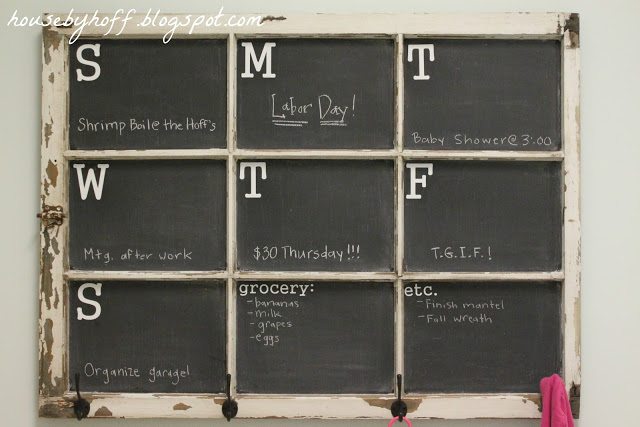 housebyhoff.blogspot.com
S
Shrimp Boil@ the Hoff's
M
Labor Day!
T
Baby Shower@ 3:00
W
Mtg. after work
T
$30 Thursday!!!
F
T.G.I.F.!
S
Organize garage!
grocery:
- bananas
- milk
- grapes
- eggs
etc.
- Finish mantel
- Fall wreath